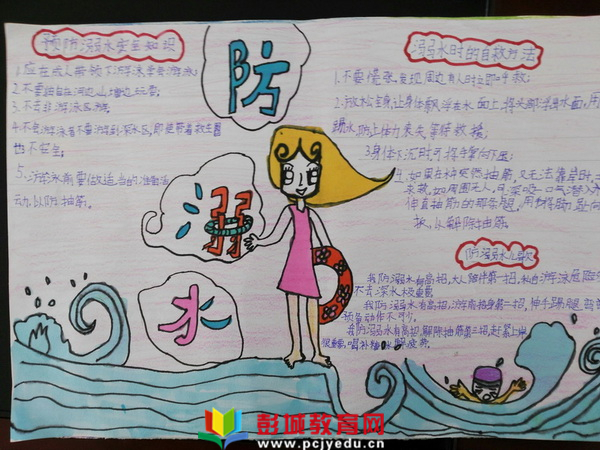 预防溺水安全知识
1.应在成人带领下游泳学会游泳;
2.不要独自在河边山塘边玩耍;
3.不去非游泳区游泳;
4.不会游泳者不要游到深水区,即使带着救生圈
也不安全;
5.游泳前要做适当的准备活
动,以防抽筋。
防
溺
水
溺水时的自救方法
1.不要慌张,发现周围有人时立即呼救;
2.放松全身,让身体飘浮在水面上,将头部浮出水面,用
踢水,防止体力丧失,等待救援;
3.身体下沉时可将手掌向下压;
4.如果在水中突然抽筋,又无法靠岸时,
求救。如周围无人,可深吸一口气潜入
伸直抽筋的那条腿,用
以解除抽筋
防溺水儿歌
我防溺水有高招,大人陪伴第一招,私自游泳危险
不去深水
我防溺水有高招,游前热身第二招,伸手踢腿
预备动作不可少。
我防溺水有高招,解除抽筋第三招,赶紧上岸
喝补
彭城教育网
www.pcjyedu.cn